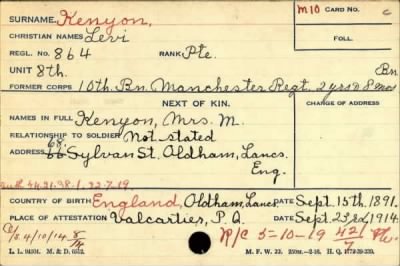 SURNAME. Kenyon, M10 CARD NO. C
CHRISTIAN NAMES Levi FOLL.
REGL. NO. 864 RANK Pte.
UNIT 8th. Bn
FORMER CORPS 10th. Bn. Manchester Regt. 2 yrs & 8 mos
NEXT OF KIN. CHANGE OF ADDRESS
NAMES IN FULL Kenyon, Mrs. M.
RELATIONSHIP TO SOLDIER Not stated
68.
ADDRESS 66 Sylvan St. Oldham, Lancs.
Eng.
auth 44.21.38.1. 22.7.19.
COUNTRY OF BIRTH England, Oldham, Lancs. DATE Sept. 15th. 1891.
PLACE OF ATTESTATION Valcartier, P.Q. DATE Sept. 23rd, 1914.
R/C 5-10-19 421/7
L. L. 94501. M. & D. 6512. M. F. W. 22. 250M.-2-16. H. Q. 1772-39-339.